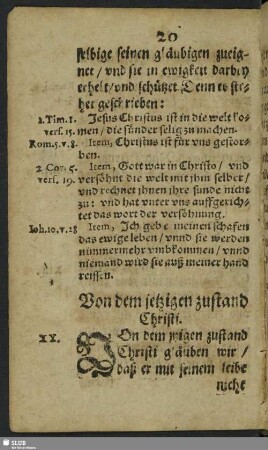 20
selbige seinen gläubigen zueig-
net / vnd sie in ewigkeit darbey
erhelt / vnd schützet Denn es ste-
het geschrieben:
1. Tim. 1. vers. 15. Jesus Christus ist in die welt kom-
men / die sünder selig zu machen.
Rom. 5. v. 8. Item, Christus ist für vns gestor-
ben.
2 Cor. 5. vers. 19. Item, Gott war in Christo / vnd
versöhnt die welt mit ihm selber /
vnd rechnet ihnen ihre sunde nicht
zu: vnd hat vnter vns auffgerich-
tet das wort der versöhnung.
Ioh. 10. v. 28 Item, Ich gebe meinen schafen
das ewige leben / vnnd sie werden
nimmermehr vmbkommen / vnnd
niemand wird sie auß meiner hand
reissen.
Von dem jetzigen zustand
Christi.
XX. VOn dem jetzigen zustand
Christi gläuben wir /
daß er mit seinem leibe
nicht
SLUB
Wir führen Wissen.